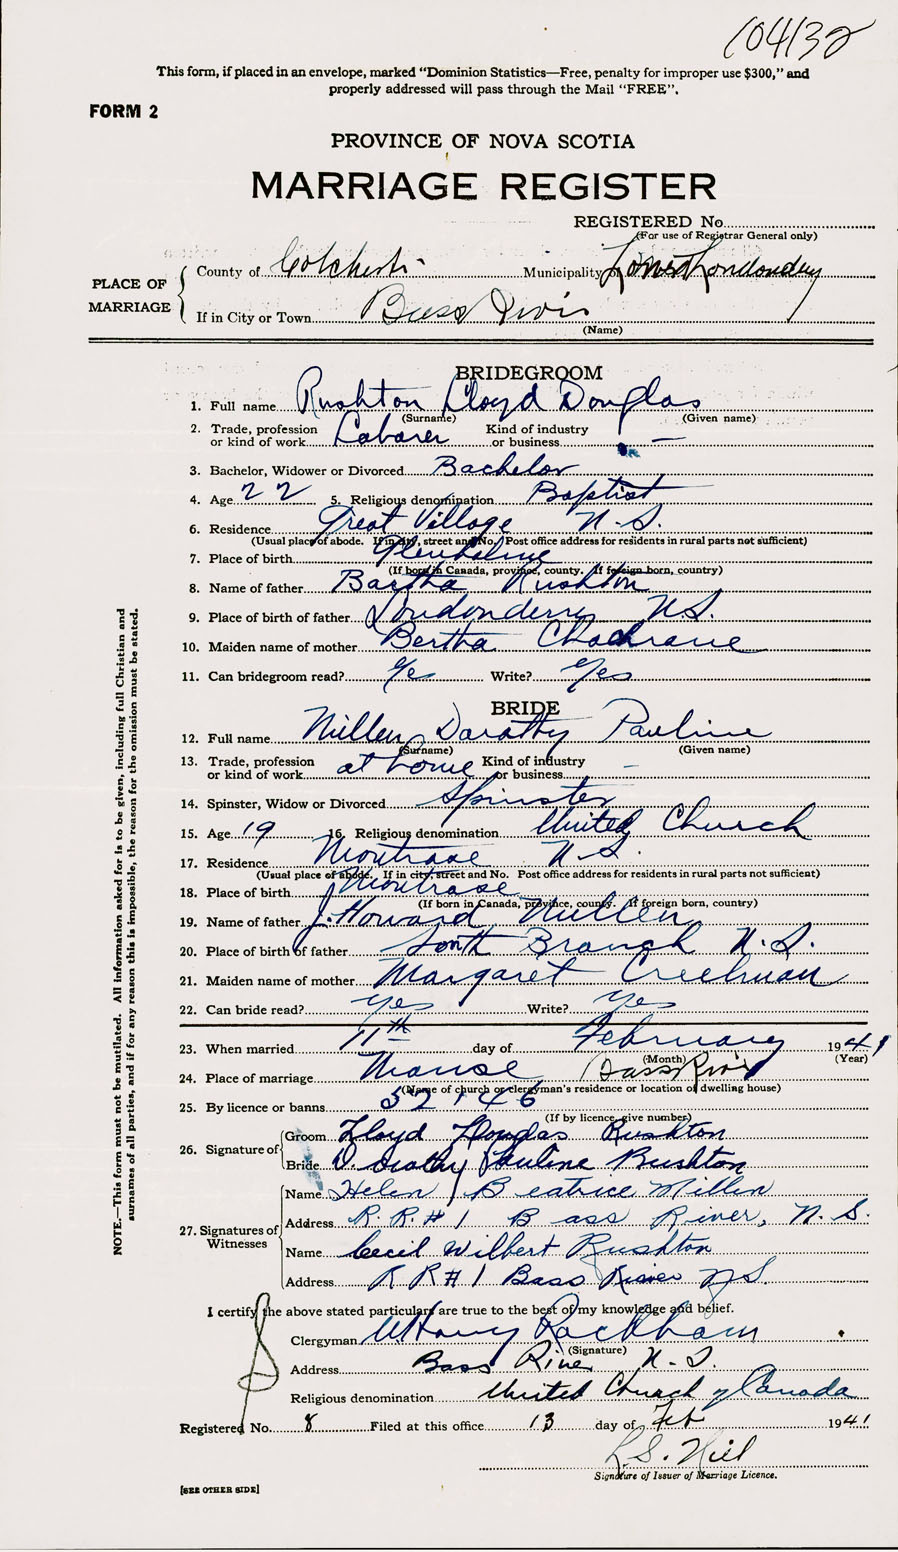 104132
This form, if placed in an envelope, marked "Dominion Statistics—Free, penalty for improper use $300," and
properly addressed will pass through the Mail "FREE".
FORM 2
PROVINCE OF NOVA SCOTIA
MARRIAGE REGISTER
REGISTERED No.
(For use of Registrar General only)
PLACE OF MARRIAGE
County of Colchester Municipality of Lower Londonderry
If in City or Town Bass River
(Name)
BRIDEGROOM
1. Full name Rushton Lloyd Douglas
(Surname) (Given name)
2. Trade, profession or kind of work Laborer Kind of industry or business —
3. Bachelor, Widower or Divorced Bachelor
4. Age 22 5. Religious denomination Baptist
6. Residence Great Village N.S.
(Usual place of abode. If in city, street and No. Post office address for residents in rural parts not sufficient)
7. Place of birth Glenholme
(If born in Canada, province, county. If foreign born, country)
8. Name of father Rushton
9. Place of birth of father Londonderry N.S.
10. Maiden name of mother Bertha
11. Can bridegroom read? Yes Write? Yes
BRIDE
12. Full name Millen Dorothy Pauline
(Surname) (Given name)
13. Trade, profession or kind of work at home Kind of industry or business —
14. Spinster, Widow or Divorced Spinster
15. Age 19 16. Religious denomination United Church
17. Residence Montrose N.S.
(Usual place of abode. If in city, street and No. Post office address for residents in rural parts not sufficient)
18. Place of birth Montrose
(If born in Canada, province, county. If foreign born, country)
19. Name of father J. Howard Millen
20. Place of birth of father South Branch N.S.
21. Maiden name of mother Margaret Creelman
22. Can bride read? Yes Write? Yes
23. When married 11th day of February 1941
(Month) (Year)
24. Place of marriage Manse Bass River
(Name of church or clergyman's residence or location of dwelling house)
25. By licence or banns 52146
(If by licence, give number)
26. Signature of
Groom Lloyd Douglas Rushton
Bride Dorothy Pauline Rushton
27. Signatures of Witnesses
Name Helen Beatrice Millen
Address R.R.#1 Bass River, N.S.
Name Cecil Wilbert Rushton
Address R R #1 Bass River N.S.
I certify the above stated particulars are true to the best of my knowledge and belief.
Clergyman Packham
(Signature)
Address Bass River N.S.
Religious denomination United Church of Canada
Registered No. 8 Filed at this office 13 day of Feb 1941
Signature of Issuer of Marriage Licence.
[SEE OTHER SIDE]
NOTE.—This form must not be mutilated. All information asked for is to be given, including full Christian and
surnames of all parties, and if for any reason this is impossible, the reason for the omission must be stated.